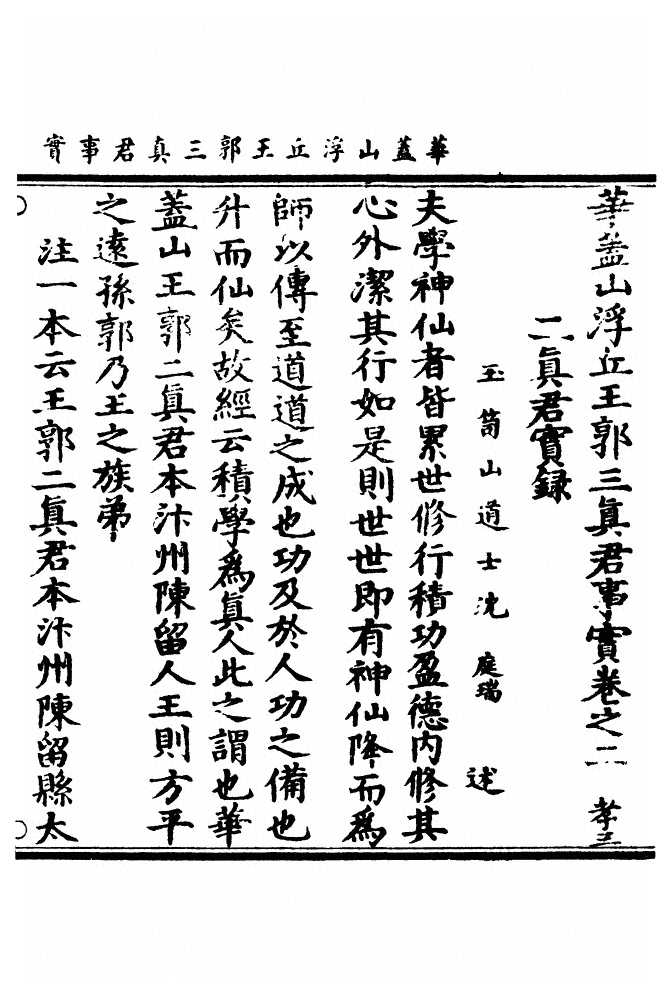 華蓋山浮丘王郭三真君事實
華蓋山浮丘王郭三眞君事實卷之二 孝三
二眞君實録
玉笥山道士沈庭瑞 述
夫學神仙者皆累世修行積功盈德内修其
心外潔其行如是則世世即有神仙降而爲
師以傳至道道之成也功及於人功之備也
升而仙矣故經云積學爲眞人此之謂也華
蓋山王郭二眞君本汴州陳留人王則方平
之遠孫郭乃王之族弟
注一本云王郭二眞君本汴州陳留縣太